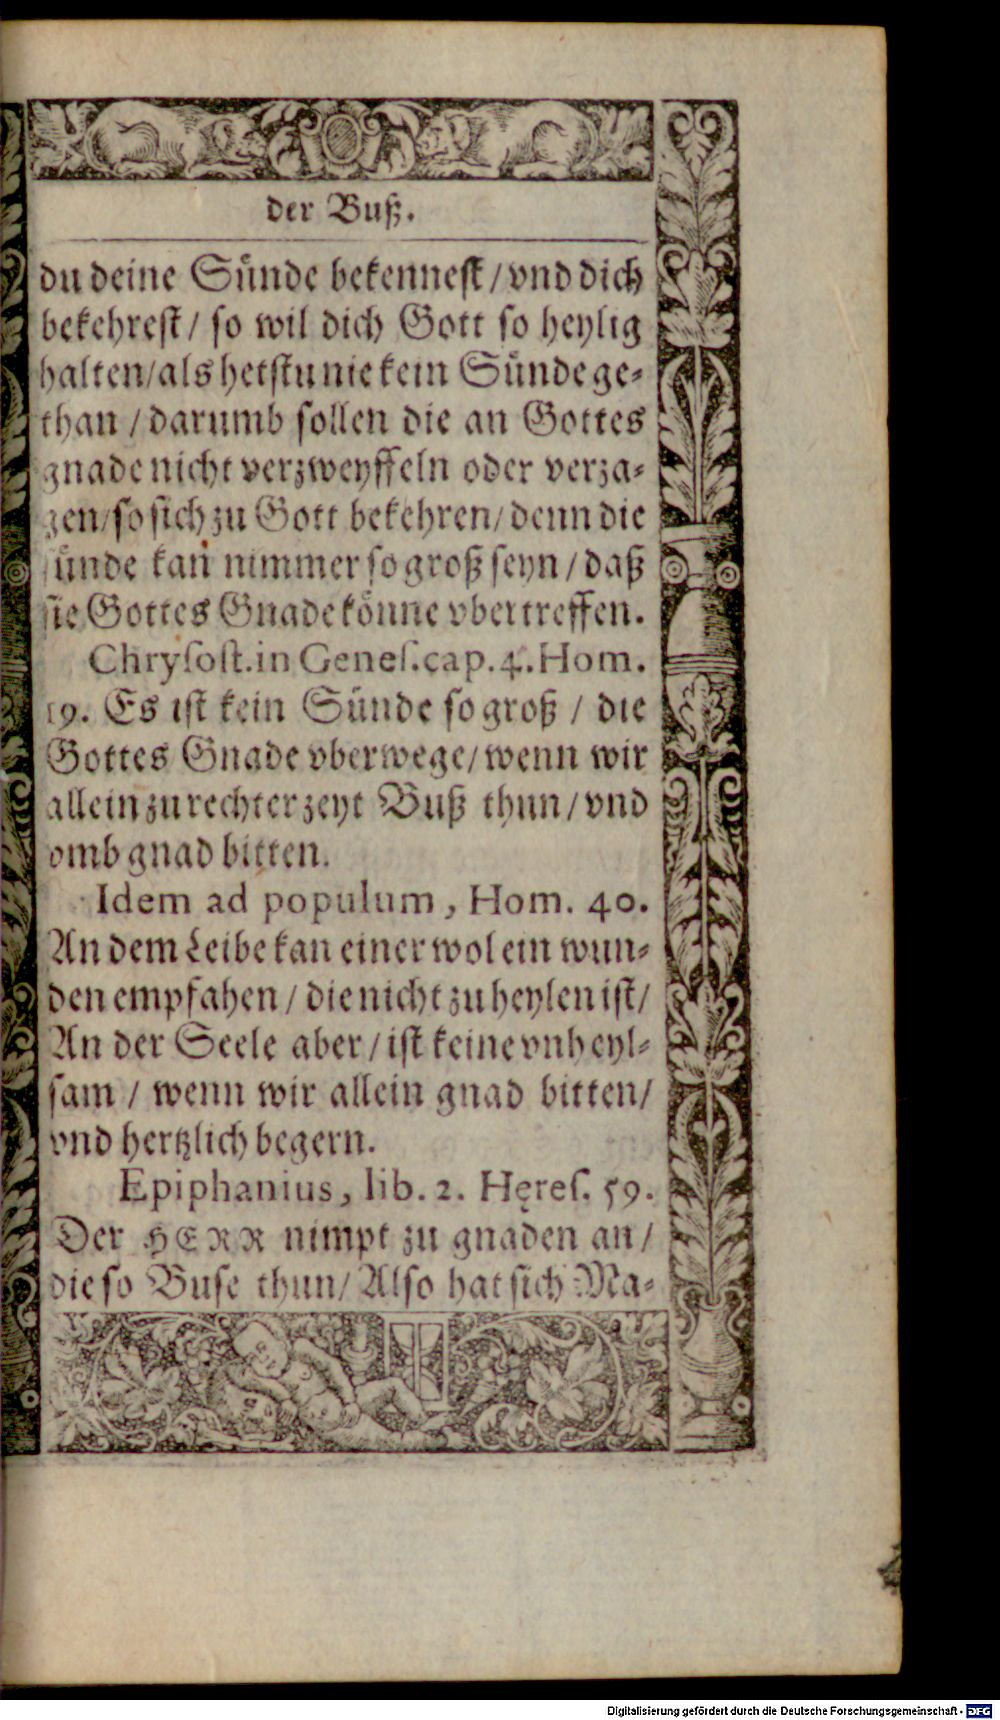 der Buß.
du deine Sünde bekennest / vnd dich
bekehrest / so wil dich Gott so heylig
halten / als hetstu nie kein Sünde ge-
than / darumb sollen die an Gottes
gnade nicht verzweyffeln oder verza-
gen / so sich zu Gott bekehren / denn die
sünde kan nimmer so groß seyn / daß
sie Gottes Gnade könne vbertreffen.
Chrysost. in Genes. cap. 4. Hom.
19. Es ist kein Sünde so groß / die
Gottes Gnade vberwege / wenn wir
allein zu rechter zeyt Buß thun / vnd
vmb gnad bitten.
Idem ad populum, Hom. 40.
An dem Leibe kan einer wol ein wun-
den empfahen / die nicht zu heylen ist /
An der Seele aber / ist keine vnheyl-
sam / wenn wir allein gnad bitten /
vnd hertzlich begern.
Epiphanius, lib. 2. Hęres. 59.
Der HERR nimpt zu gnaden an /
die so Buse thun / Also hat sich Ma-
Digitalisierung gefördert durch die Deutsche Forschungsgemeinschaft - DFG